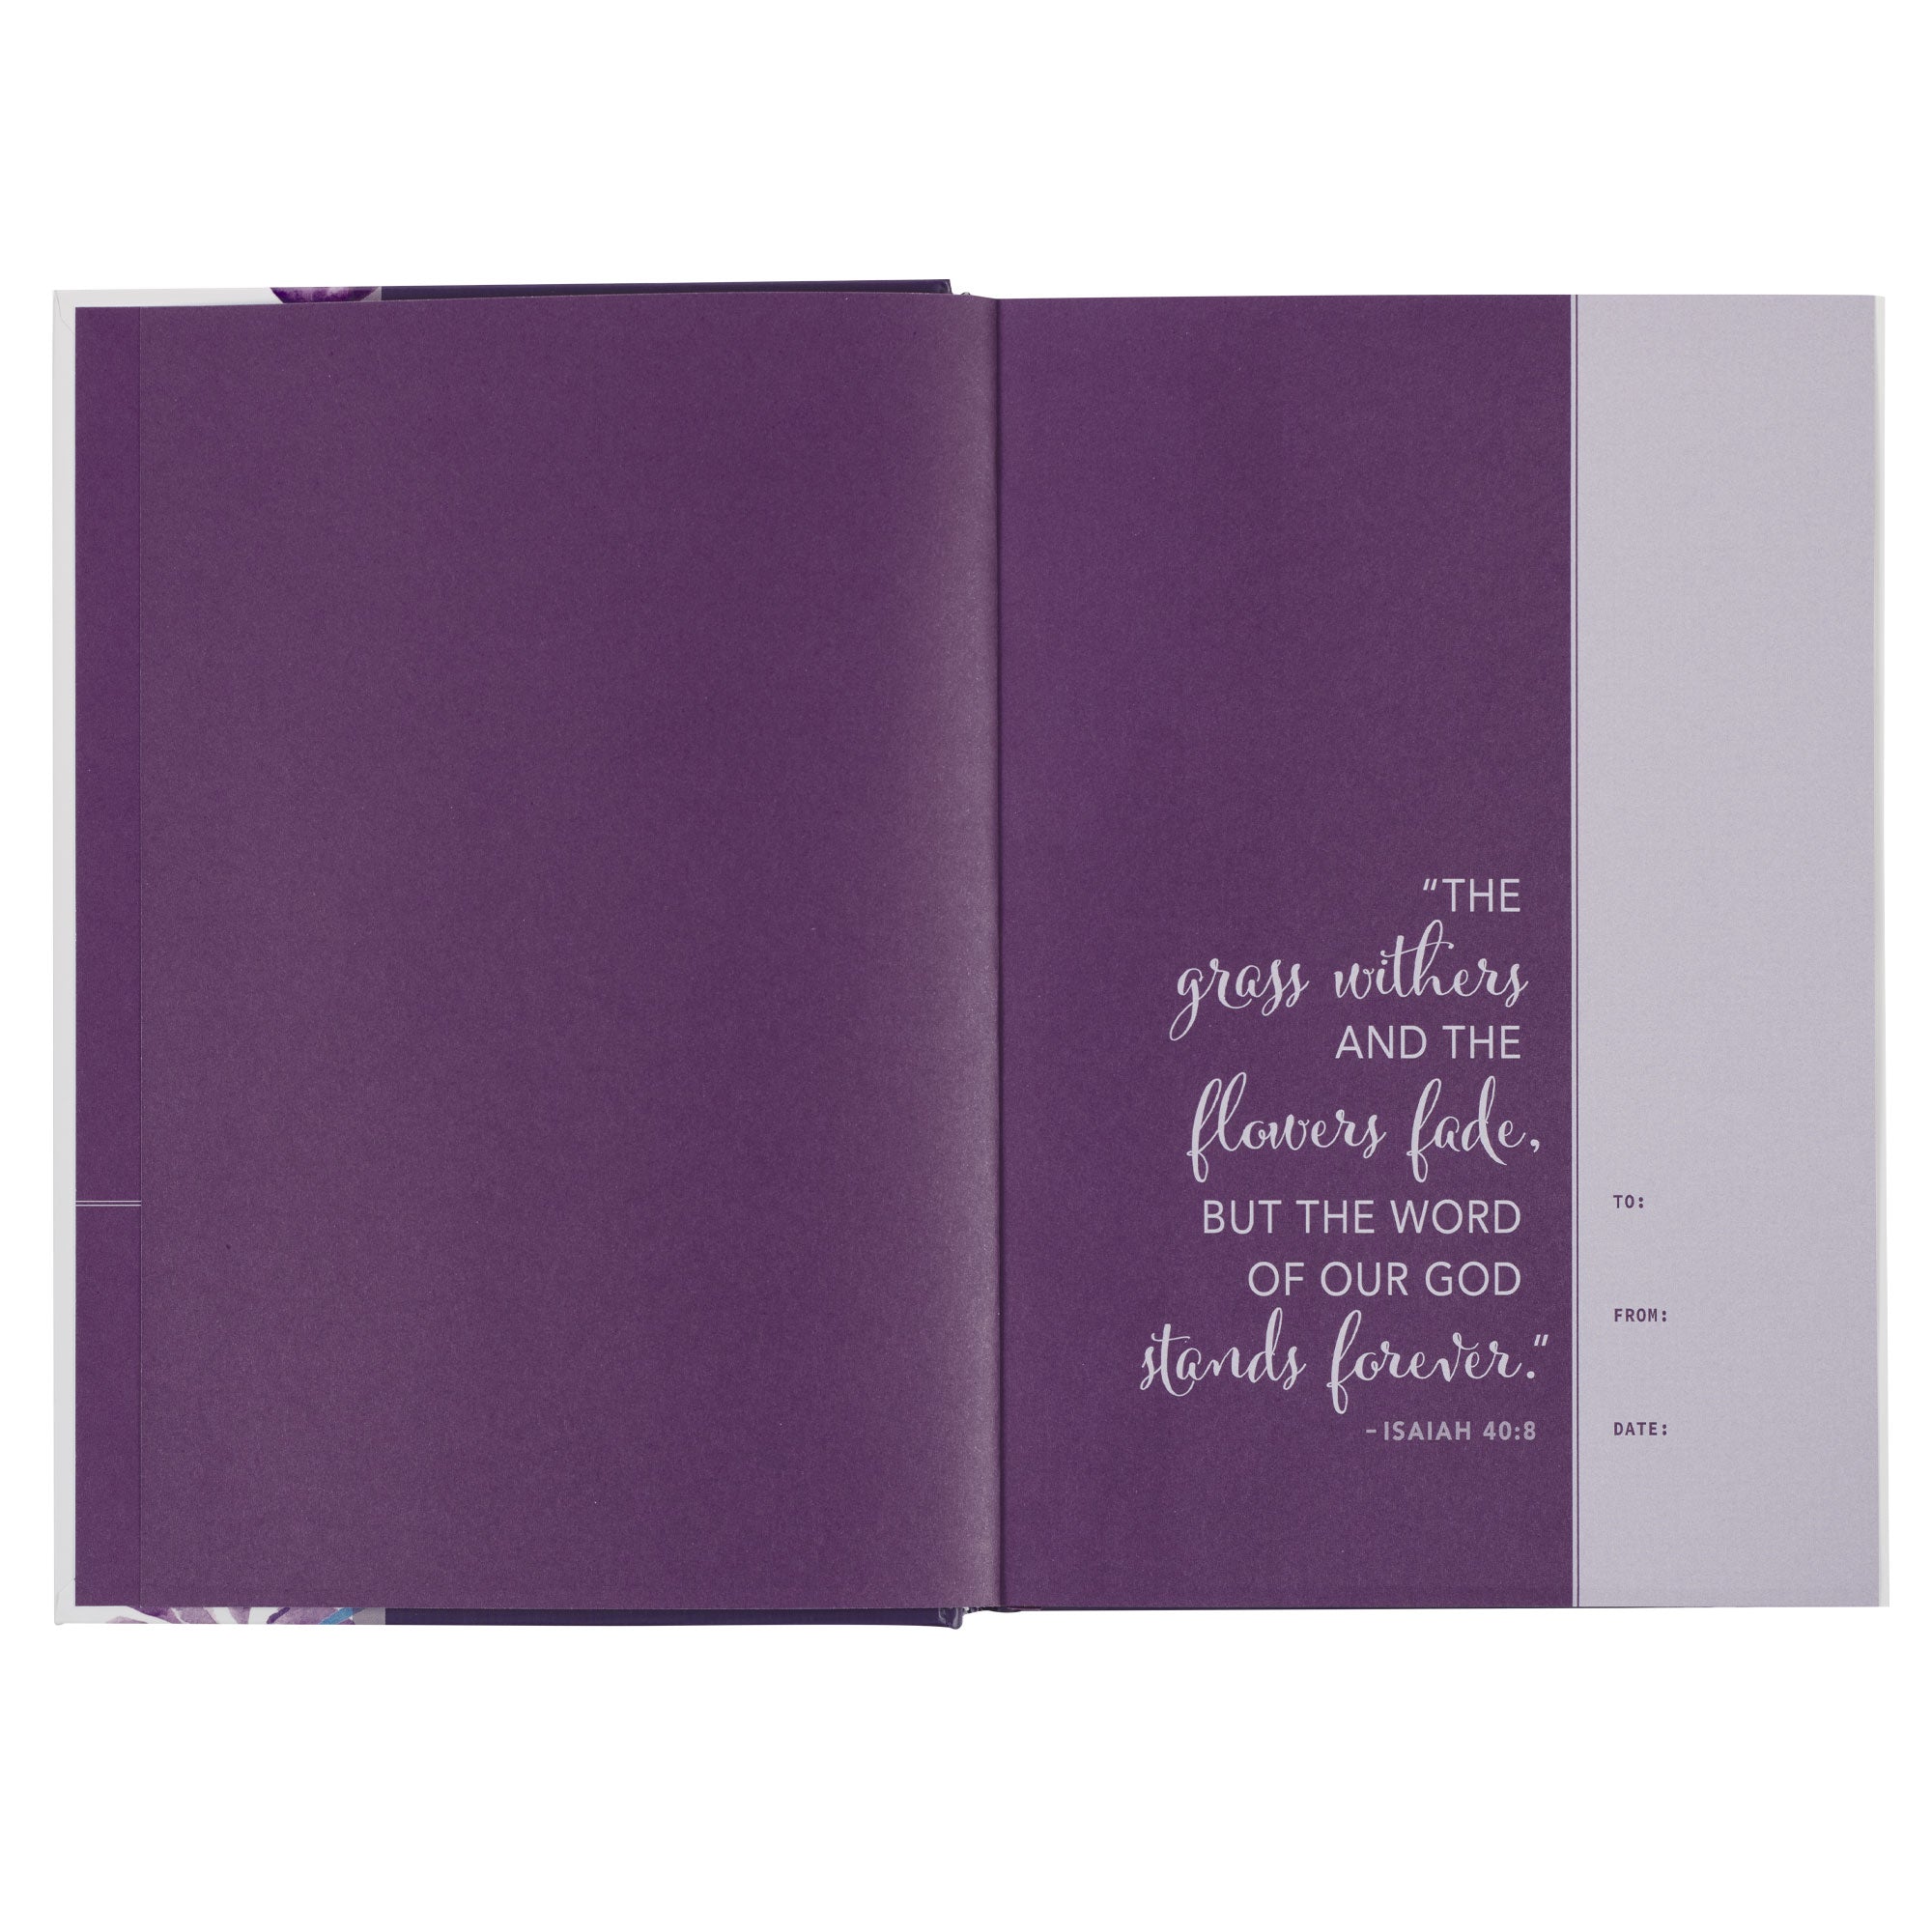 “THE
grass withers
AND THE
flowers fade,
BUT THE WORD
OF OUR GOD
stands forever.”
–ISAIAH 40:8
TO:
FROM:
DATE: